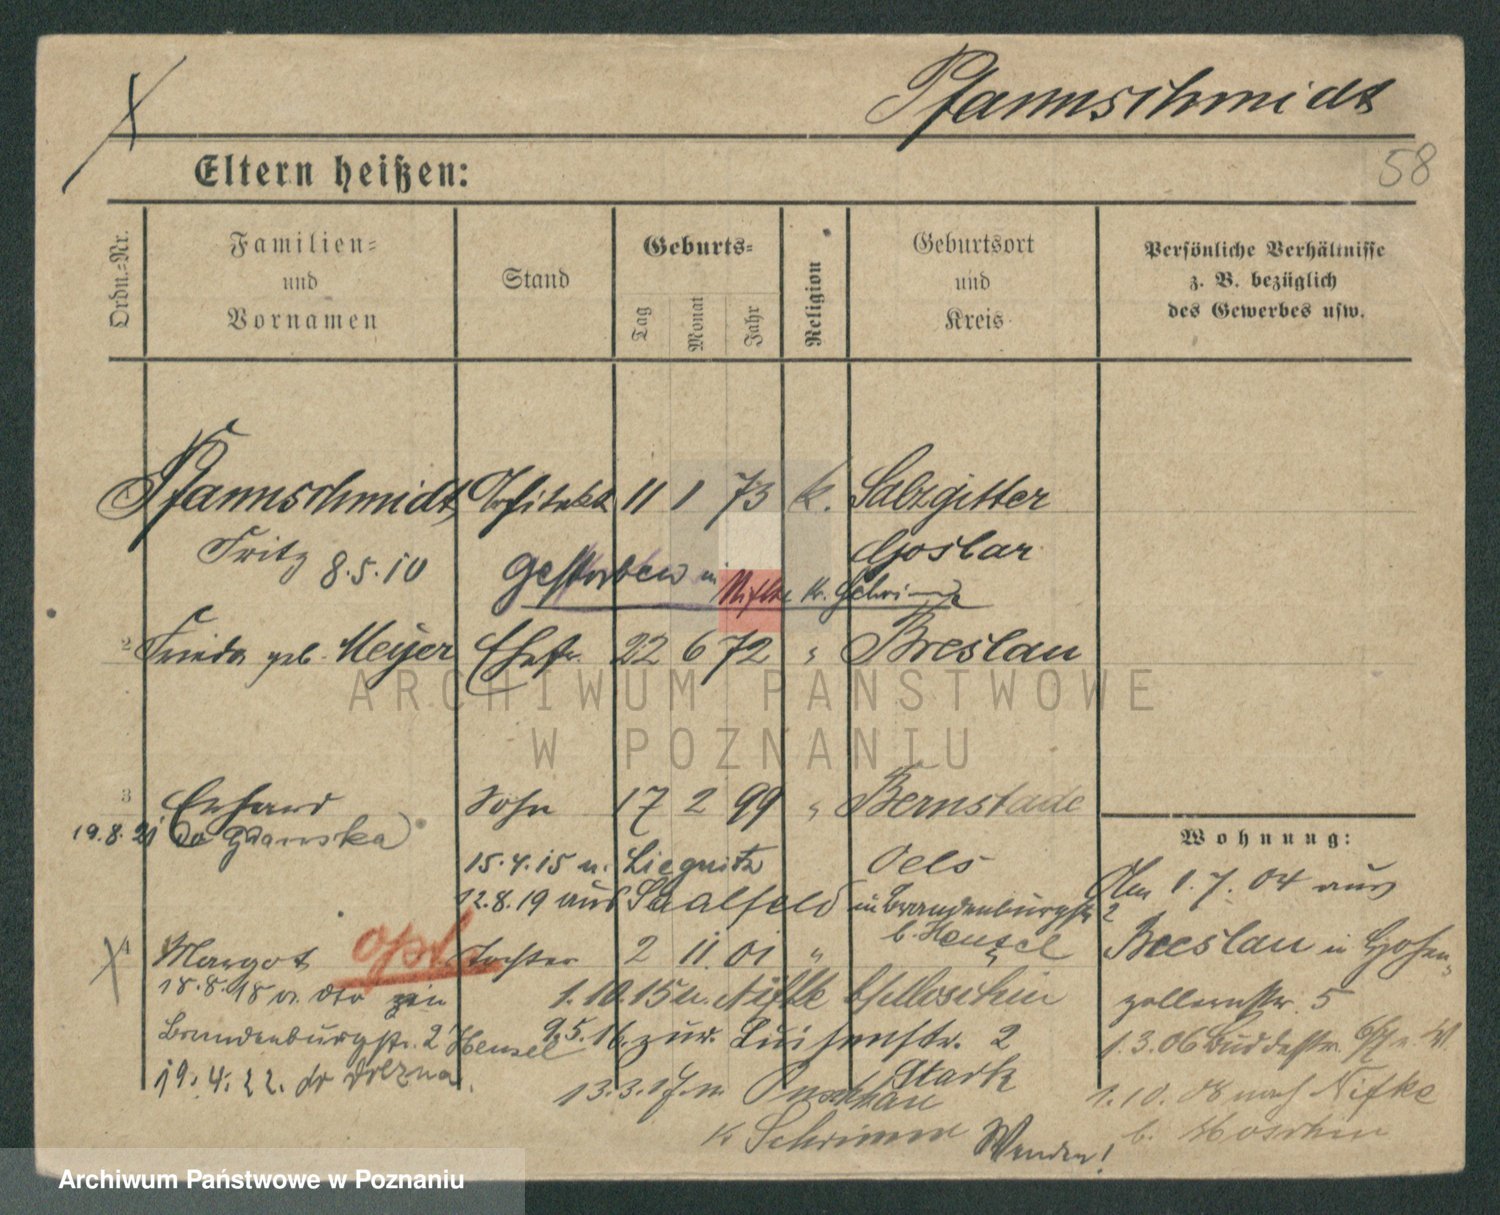 Pfannschmidt
58
Eltern heißen:
Ordn.-Nr.
Familien-
und
Vornamen
Stand
Geburts-
Tag
Monat
Jahr
Religion
Geburtsort
und
Kreis
Persönliche Verhältnisse
z. B. bezüglich
des Gewerbes usw.
Pfannschmidt, Architekt 11 1 73 k. Salzgitter
Fritz 8.5.10 Goslar
gestorben in Nifke Kr. Schrimm
2 Frieda geb. Meyer Ehefr. 22 6 72 " Breslau
ARCHIWUM PAŃSTWOWE
W POZNANIU
3 Erhard Sohn 17 2 99 " Bernstadt
19.8.21 do Gdanska
Wohnung:
15.4.15 n. Liegnitz Oels
Am 1.7.04 aus
12.8.19 aus Saalfeld in Brandenburgstr 2
b. Hensel
4 Margot opt. Tochter 2 11 01 "
Breslau in Hohen-
zollernstr. 5
18.8.18 v.
1.10.15 n. Nifke b/Moschin
Brandenburgstr. 2 Hensel
9.5.16 zur. Luisenstr. 2
Stark
1.3.06
19.4.22. do
13.3.17 n.
1.10.08 nach Nifke
b. Moschin
Kr Schrimm
Wenden!
Archiwum Państwowe w Poznaniu